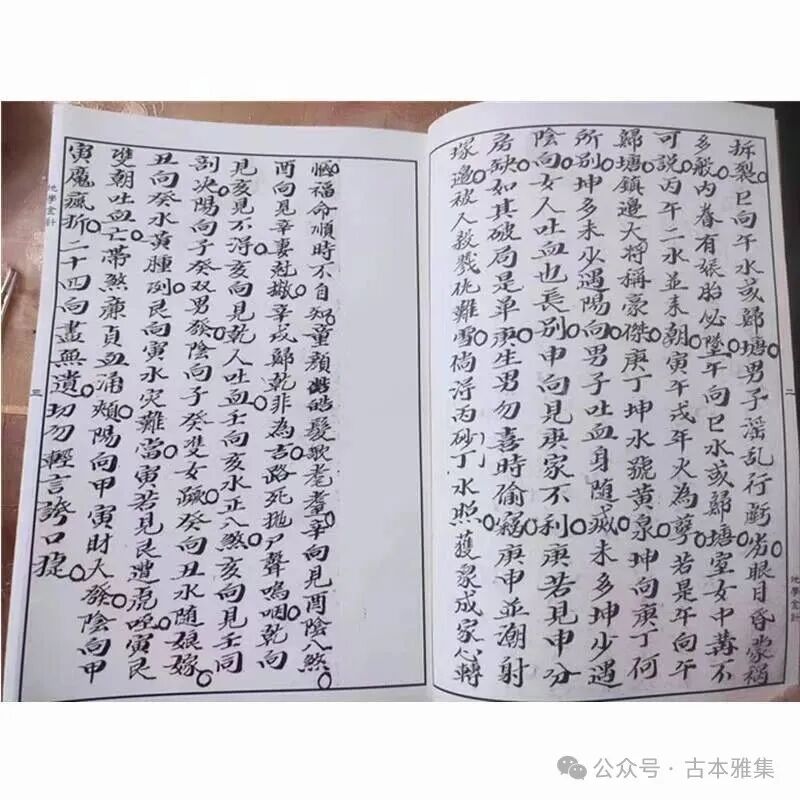 拆裂巳向午水或歸塘男子淫乱行虧劣眼目昏蒙禍
多般内眷有娠胎必墜午向巳水或歸塘室女中冓不
可説丙午二水並来朝寅午戌年火為孽若是午向午
歸塘鎮邊大將稱豪傑庚丁坤水號黄泉坤向庚丁何
所别坤多未少遇陽向男子吐血身随滅未多坤少遇
陰向女人吐血也長别申向見庚家不利庚若見申分
房缺如其破局是单庚生男勿喜時偷竊庚申並潮射
塚邊被人殺戮仇難雪倘淂丙砂丁水照獲衆成家心轉
惱福命順時不自知童顔皓髮歌耄耋辛向見酉陰八煞
酉向見辛妻赴撤辛戌歸乾非為吉路死抛尸聲嗚咽乾向
見亥見不淂亥向見乾人吐血壬向亥水正八煞亥向見壬同
剖决陽向子癸双男發陰向子癸隻女蹶癸向丑水随娘嫁
丑向癸水黄腫刑艮向寅水灾難當寅若見艮遭虎呼寅艮
双朝吐血亡帶煞廉貞血涌頰陽向甲寅財大發陰向甲
寅魔瘋折二十四向盡無遺切勿輕言誇口捷
地學金針
二
地學金針
三
公众号·古本雅集